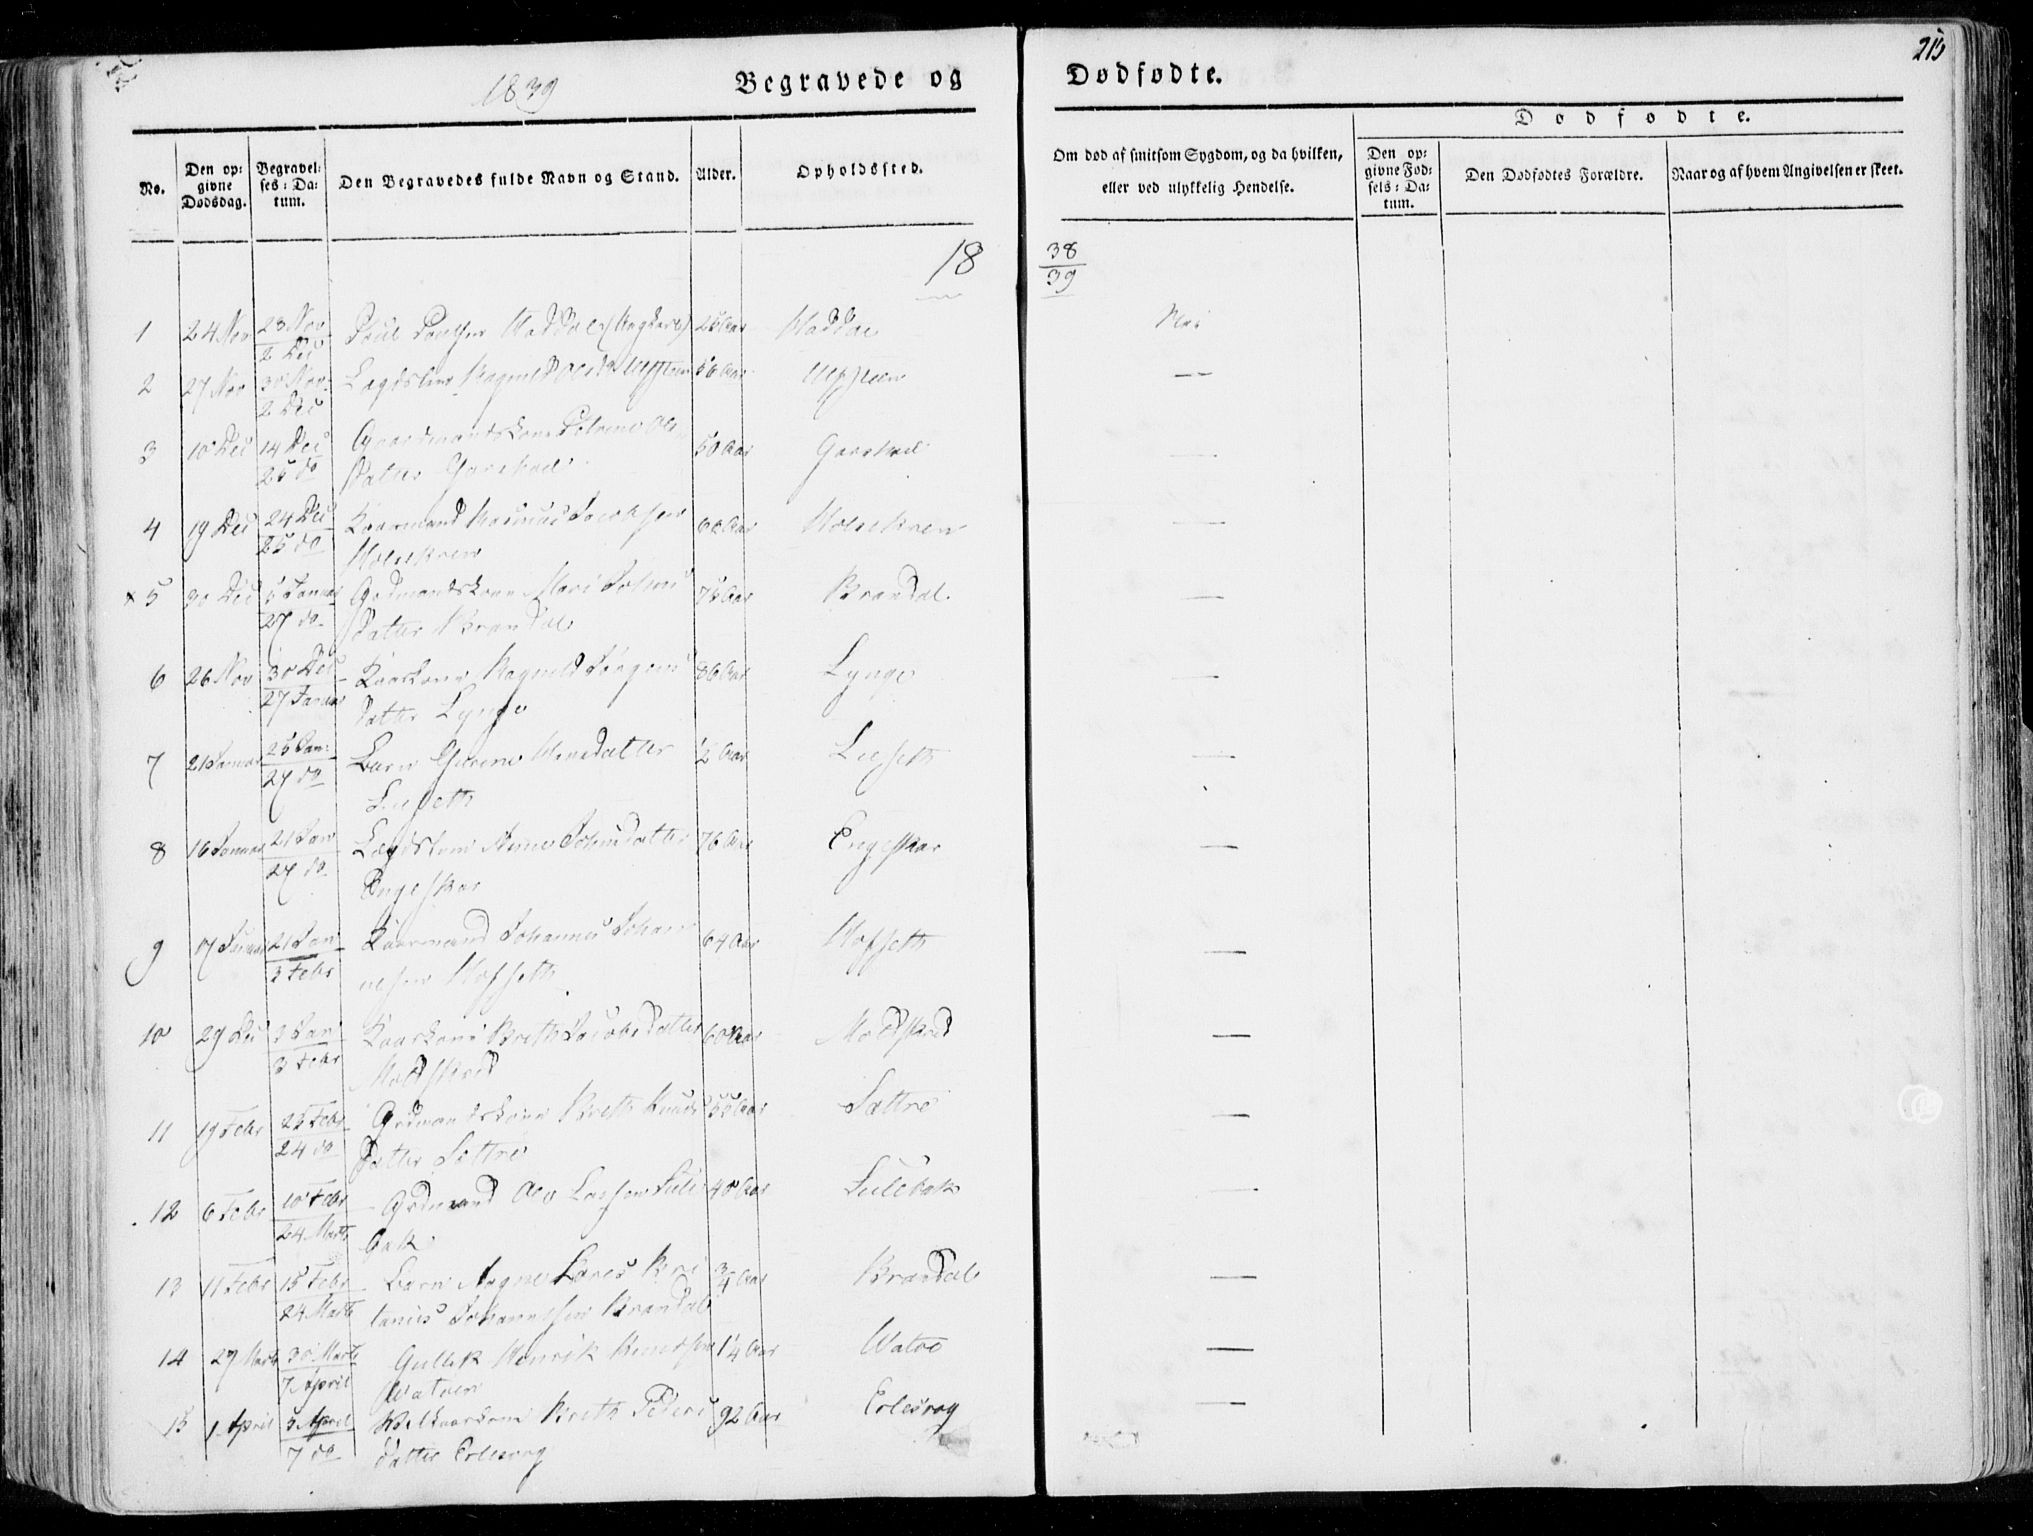 215
1839
Begravede og Dødfødte.
Dødfødte.
No.
Den op: givne Dødsdag.
Begravel: ses: Da: tum.
Den Begravedes fulde Navn og Stand.
Alder.
Opholdssted.
Om død af smitsom Sygdom, og da hvilken, eller ved ulykkelig Hendelse.
Den op: givne Fød: sels: Da: tum.
Den Dødfødtes Forældre.
Naar og af hvem Angivelsen er skeet.
18 38/39
1 24 Nov 23 Nov / 2 Dec Haddal Haddal Nei
2 27 Nov 30 Nov / 2 Dec Ragnild 56 Aar —
3 10 Dec 14 Dec / 26 do Gaardmandskone Ols
datter Garshol 50 Aar Garshol —
4 19 Dec 24 Dec / 26 do Kaarmand Rasmus Jacobsen
Holsekren Aar Holsekren —
x 5 30 Dec 5 Januar / 27 do Grdmandskone Mari Johns
datter Brandal 75 Aar Brandal —
6 26 Nov 30 Dec / 27 Januar Kaarkone Ragnild Jørgens
datter Lynge 86 Aar Lynge —
7 21 Januar 25 Jan: / 27 do Barn
Liseth ½ Aar Liseth —
8 16 Januar 21 Jan / 27 do Lægdslem Johnsdatter
Engeskar 76 Aar Engeskar —
9 17 Januar 21 Jan / 3 Febr Kaarmand Johannes Johan
nesen Hofseth 64 Aar Hofseth —
10 29 Dec 3 Jan / 3 Febr Kaarkone Brith Jacobsdatter
Moldskred 60 Aar Moldskred —
11 19 Febr 23 Febr / 24 do Grdmandskone Brith Knuds
datter Sættre 55 Aar Sættre —
12 6 Febr 10 Febr / 24 Marts Grdmand Ole Larsen Sule
bak 40 Aar Sulebak —
13 11 Febr 15 Febr / 24 Marts Barn Lares Kri
tanius Johannesen Brandal ¾ Aar Brandal —
14 27 Marts 30 Marts / 7 April Gullik Henrik Knudsen
Watne ¼ Aar Watne —
15 1 April 5 April / 7 do Brith Peders
datter Erlesvog 92 Aar Erlesvog —